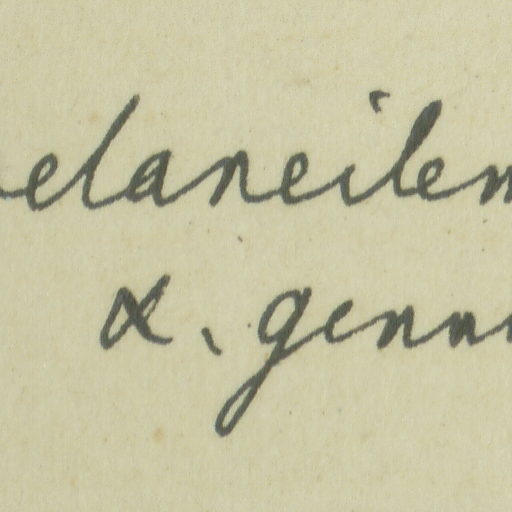 elaneilem
α. genu